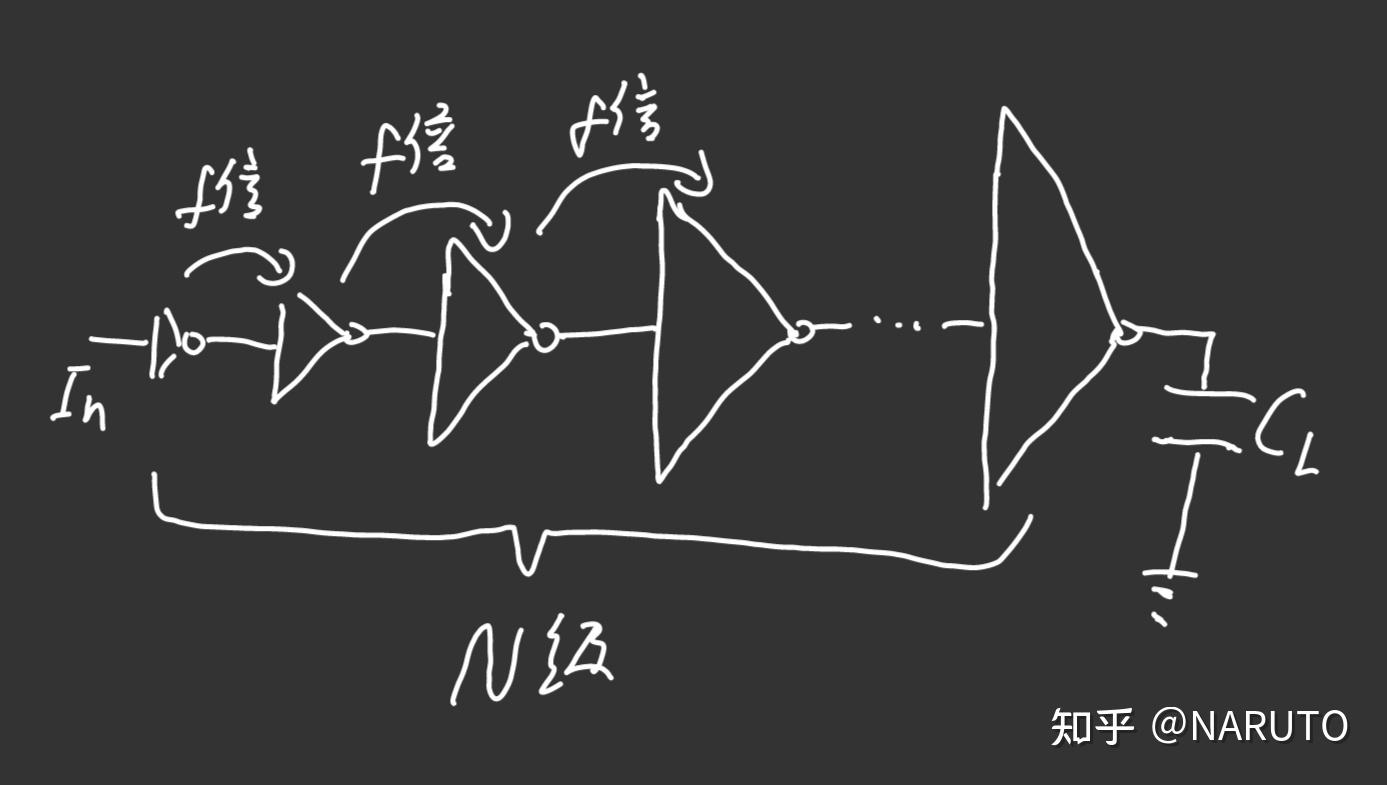 f倍
f倍
f倍
In
...
C_L
N级
知乎 @NARUTO